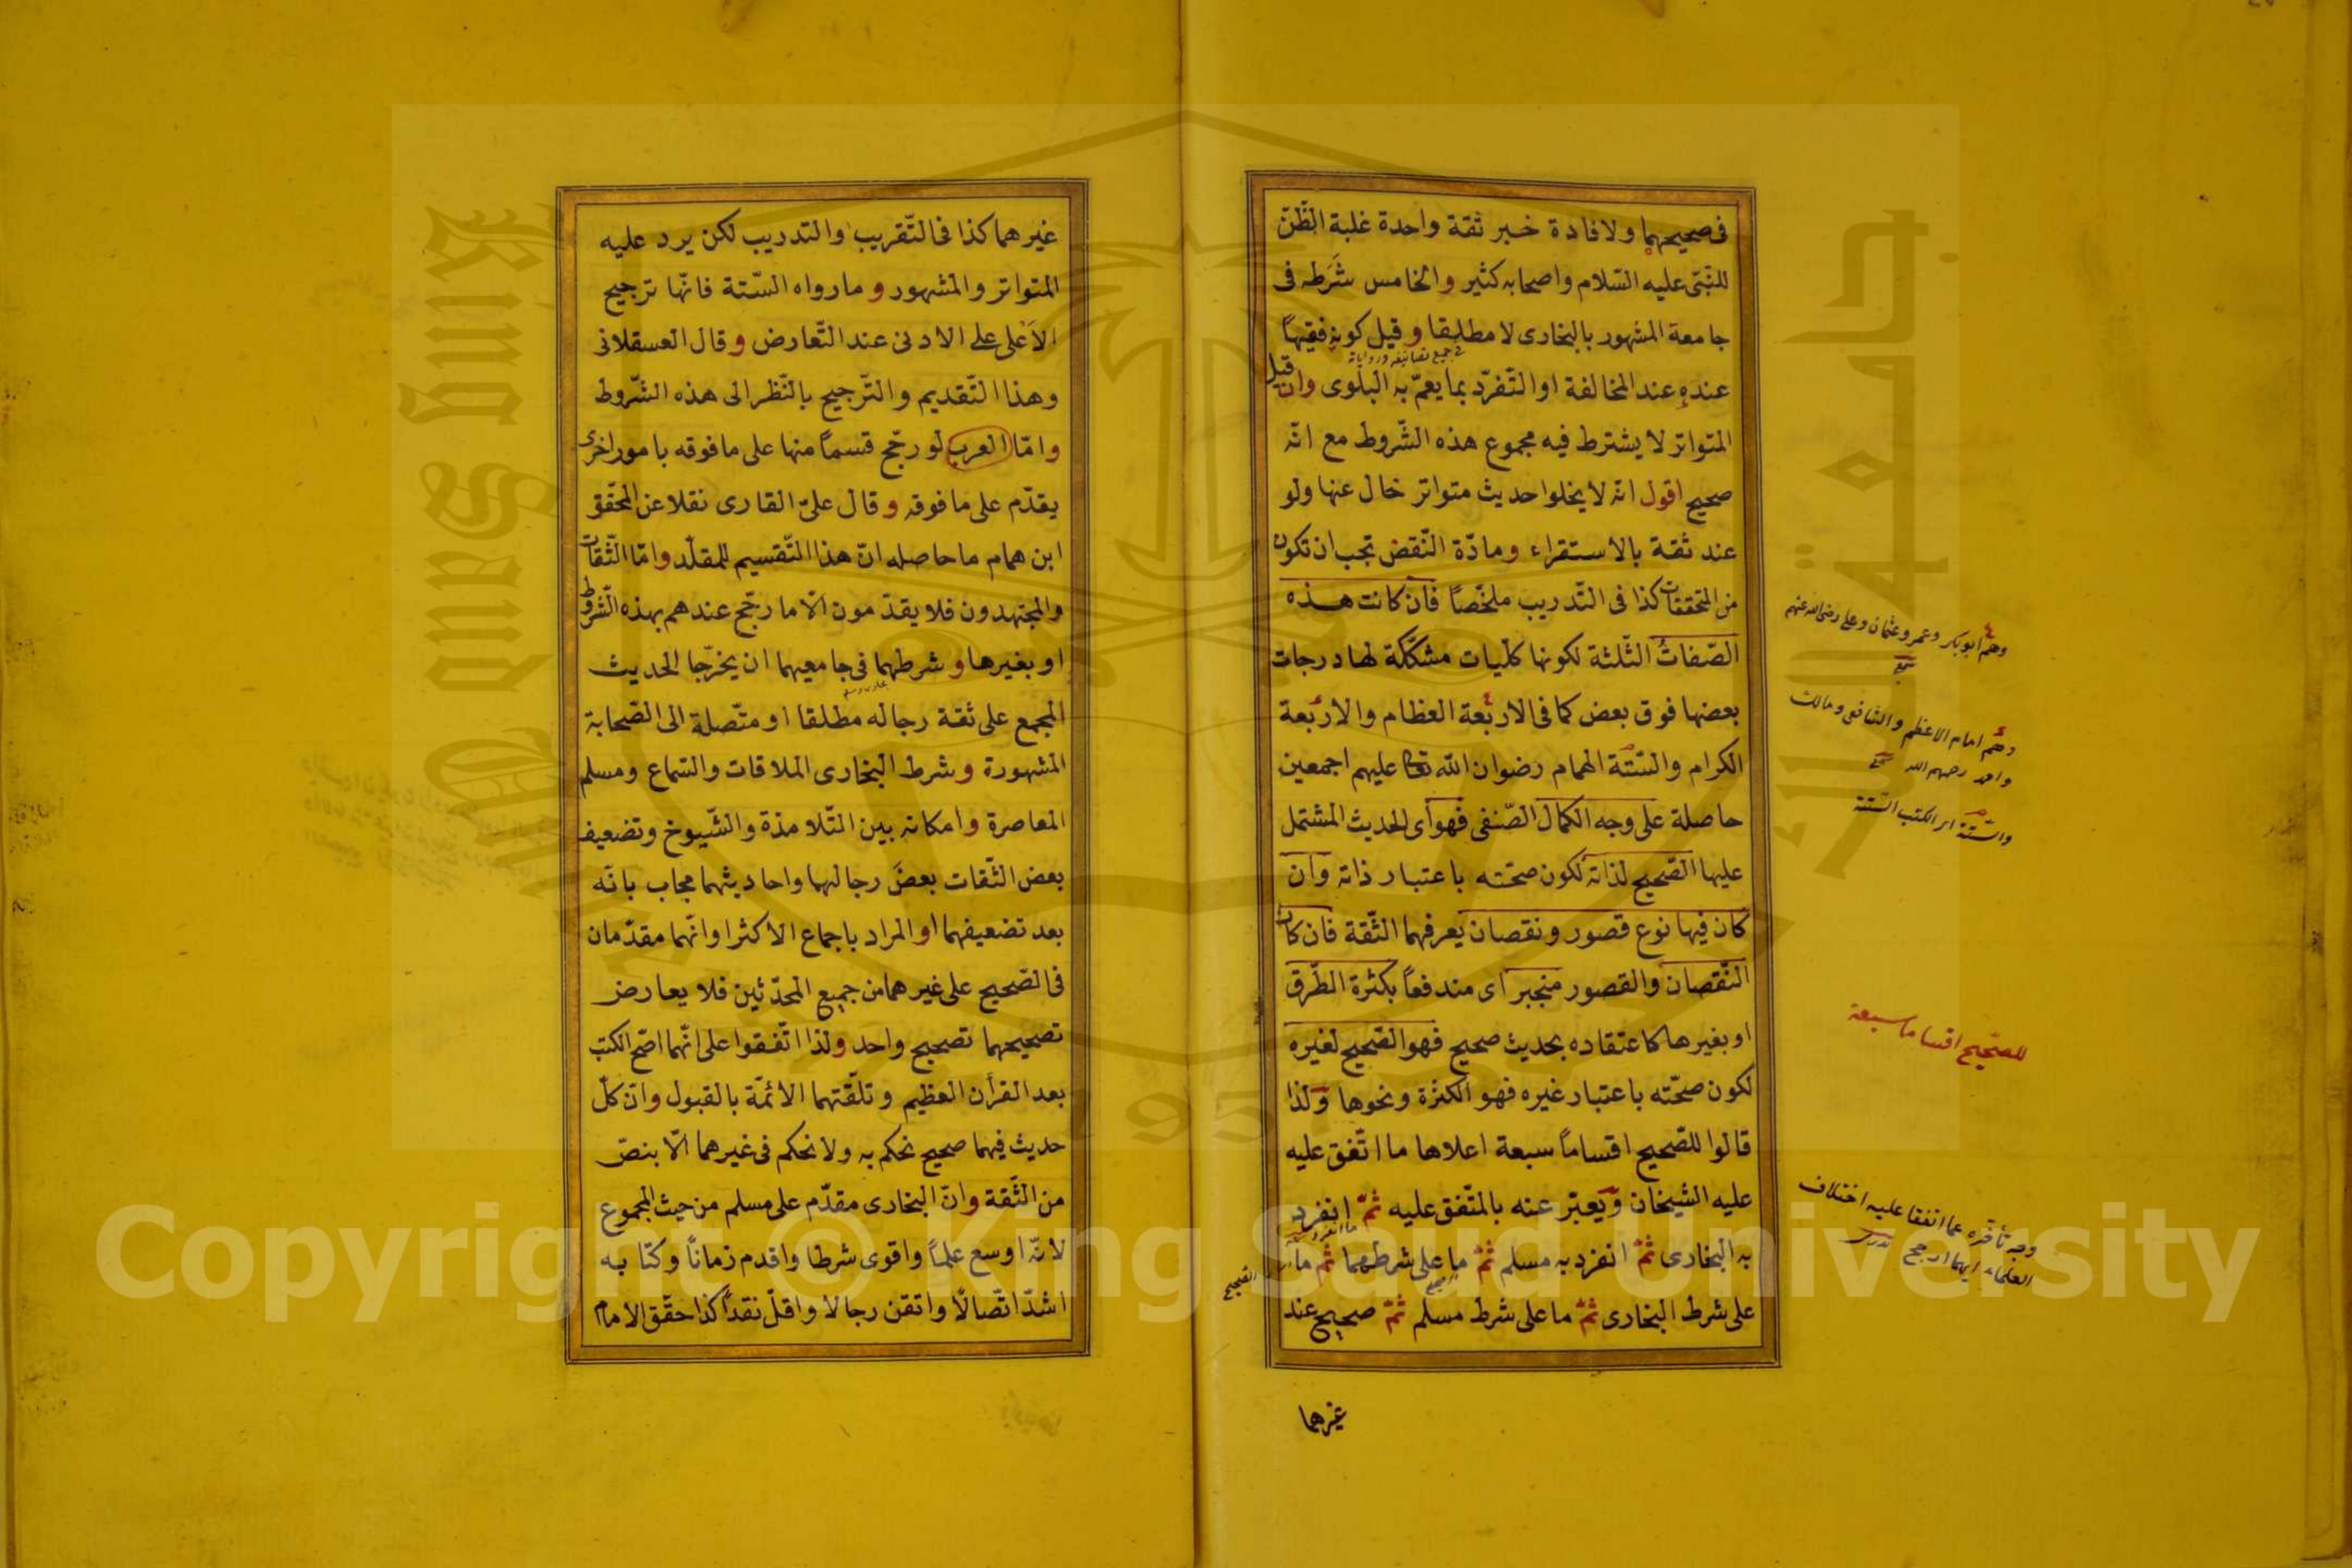 فى صحيحهما ولافادة خبر ثقة واحدة غلبة الظّنّ
للنّبى عليه السّلام واصحابه كثير والخامس شَرَطه فى
جامعة المشهور بالبخارى لا مطلقا وقيل كونه فقيهًا
فى جميع تصانيفه ورواياته
عنده عند المخالفة او التّفرّد بما يعمّ به البلوى وان قيل
المتواتر لا يشترط فيه مجموع هذه الشّروط مع انّه
صحيح اقول انه لا يخلوا حديث متواتر خال عنها ولو
عند ثقة بالاستقراء ومادّة النّقض تجب ان تكون
من المتحققات كذا فى التّدريب ملخّصًا فان كانت هذه
الصّفاتُ الثّلثة لكونها كلّيات مشكّكة لها درجات
بعضها فوق بعض كما فى الاربعة العظام والاربعة
الكرام والسّتّة الهمام رضوان الله تعالى عليهم اجمعين
حاصلة على وجه الكمال الصّنفى فهو اى الحديث المشتمل
عليها الصّحيح لذاته لكون صحّته باعتبار ذاته وان
كان فيها نوع قصور ونقصان يعرفهما الثّقة فان كان
النّقصان والقصور منجبر اى مندفعًا بكثرة الطّرق
او بغيرها كاعتقاده بحديث صحيح فهو الصّحيح لغيره
لكون صحّته باعتبار غيره فهو الكثرة ونحوها ولذا
قالوا للصّحيح اقسامًا سبعة اعلاها ما اتّفق عليه
عليه الشيخان ويعبّر عنه بالمتّفق عليه ثمّ انفرد
به البخارى ثمّ انفرد به مسلم ثمّ ما على شرطهما ثمّ ما
على شرط البخارى ثمّ ما على شرط مسلم ثمّ صحيح عند
غيرهما
وهم ابوبكر وعمر وعثمان وعلى رضى الله عنهم
وهم امام الاعظم والشافعى ومالك
واحمد رحمهم الله
والسّتّة الكتب السّتة
للصّحيح اقساما سبعة
وجه تأخره عما اتفقا عليه اختلاف
العلماء ايهما ارجح
الصحيح
غيرهما كذا فى التّقريب والتدريب لكن يرد عليه
المتواتر والمشهور وما رواه السّتة فانّها ترجيح
الاَعْلى على الادنى عند التّعارض وقال العسقلانى
وهذا التّقديم والتّرجيح بالنّظر الى هذه الشّروط
وامّا العرب لو رجّح قسمًا منها على ما فوقه بامور اخرى
يقدّم على ما فوقه وقال علىّ القارى نقلا عن المحقّق
ابن همام ما حاصله انّ هذا التّقسيم للمقلّد وامّا الثّقات
والمجتهدون فلا يقدّمون الّا ما رجّح عندهم بهذه الشّروط
او بغيرها وشرطهما فى جامعيهما ان يخرّجا الحديث
المجمع على ثقة رجاله مطلقا او متّصلة الى الصّحابة
المشهورة وشرط البخارى الملاقات والسّماع ومسلم
المعاصرة وامكانه بين التّلامذة والشّيوخ وتضعيف
بعض الثّقات بعضَ رجالهما واحاديثهما مجاب بانّه
بعد تضعيفهما او المراد باجماع الاكثر او انّهما مقدّمان
فى الصّحيح على غيرهما من جميع المحدّثين فلا يعارض
تصحيحهما تصحيح واحد ولذا اتّفقوا على انّهما اصّح الكتب
بعد القرأن العظيم وتلقّتهما الائمّة بالقبول وانّ كلّ
حديث فيهما صحيح نحكم به ولا نحكم فى غيرهما الّا بنصّ
من الثّقة وانّ البخارى مقدّم على مسلم من حيث المجموع
لانّه اوسع علمًا واقوى شرطا واقدم زمانًا وكتابه
اشدّ اتّصالًا واتقن رجالا واقلّ نقدًا كذا حقّق الامام
جامعة الملك
King Saud University
1957
Copyright © King Saud University